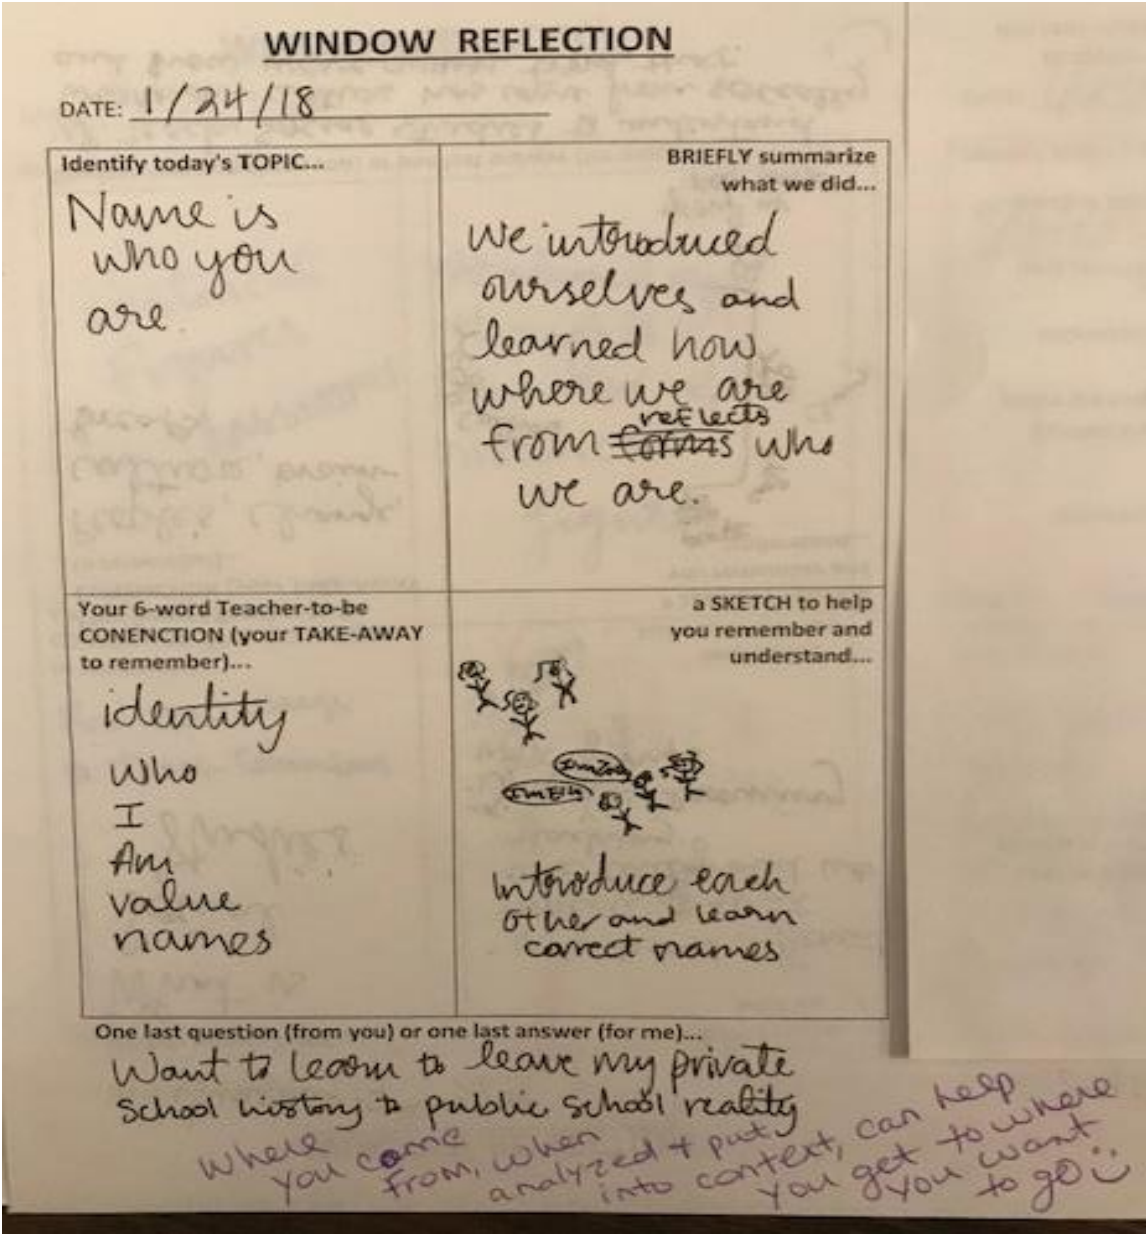 WINDOW REFLECTION
DATE: 1/24/18
Identify today's TOPIC...
Name is
who you
are.
BRIEFLY summarize
what we did...
We introduced
ourselves and
learned how
where we are
reflects
from forms who
we are.
Your 6-word Teacher-to-be
CONENCTION (your TAKE-AWAY
to remember)...
identity
who
I
Am
value
names
a SKETCH to help
you remember and
understand...
introduce each
other and learn
correct names
One last question (from you) or one last answer (for me)...
Want to learn to leave my private
school history to public school reality
where
you come
from, when
analyzed + put
into context, can help
you get to where
you want
to go